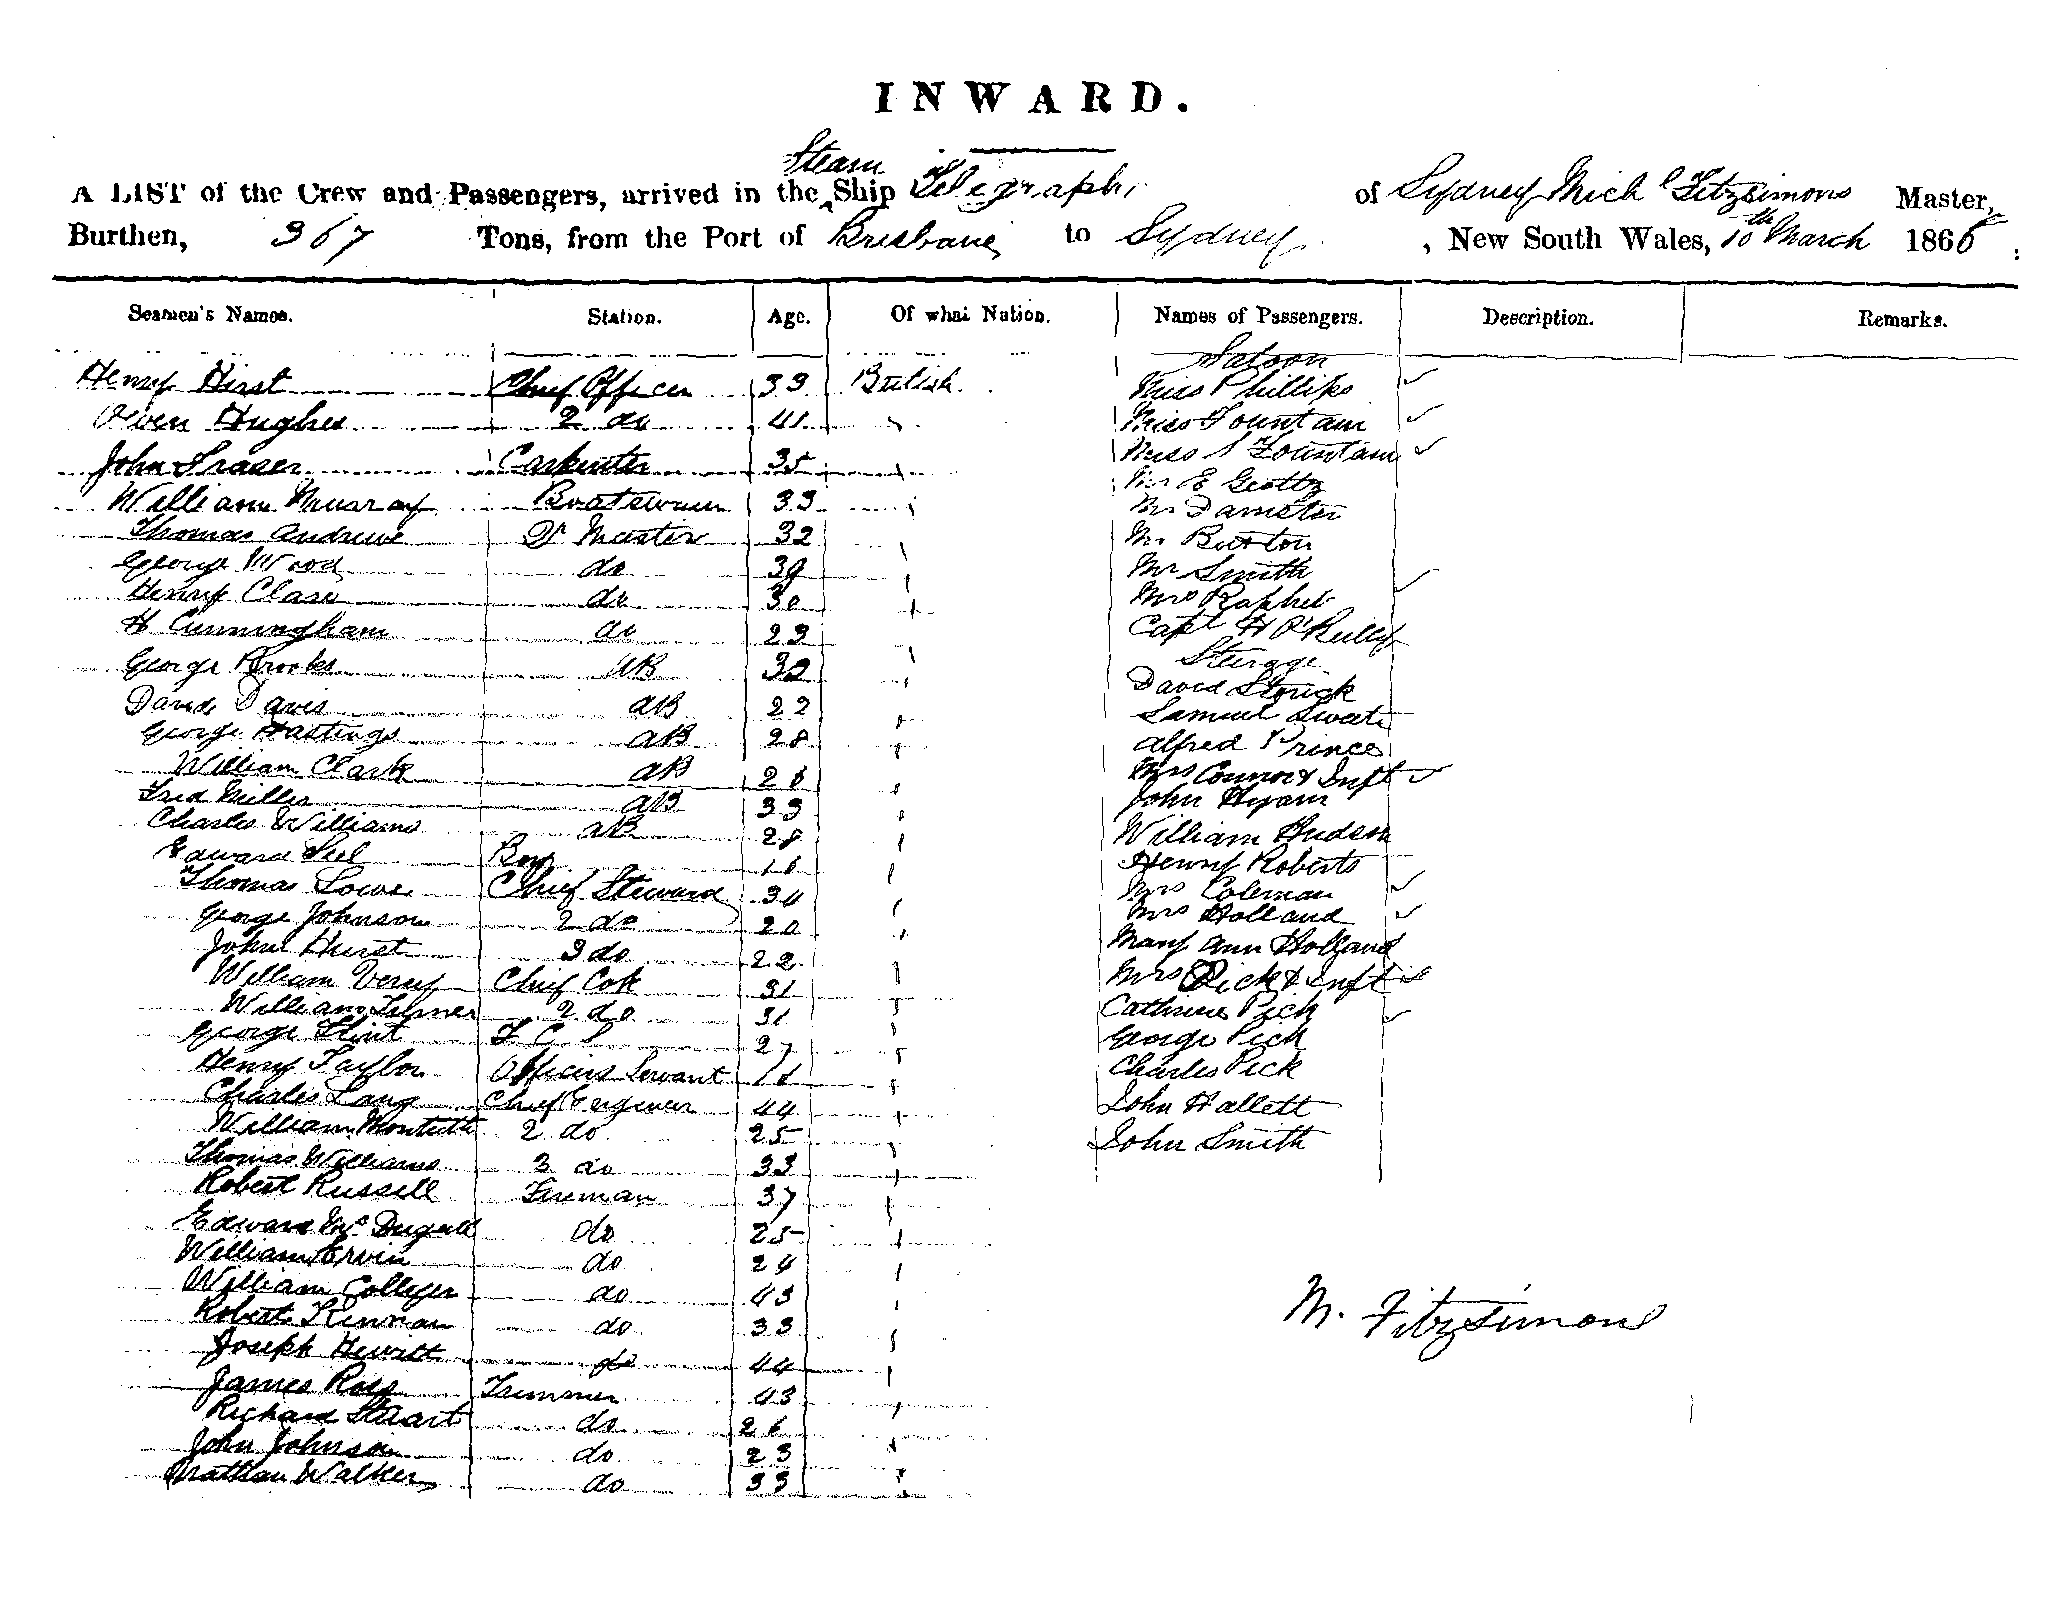 INWARD.
A LIST of the Crew and Passengers, arrived in the Steam Ship Telegraph of Sydney Michl Fitzsimons Master,
Burthen, 367 Tons, from the Port of Brisbane to Sydney, New South Wales, 10th March 1866
Seamen's Names. Station. Age. Of what Nation. Names of Passengers. Description. Remarks.
Saloon
Henry Hirst Chief Officer 33 British Miss Phillips
Owen Hughes 2 do 41 Miss Fountain
John Fraser Carpenter 35 Miss S Fountain
William Murray Boatswain 33 Mr E
Thomas Andrews Qr Master 32 Mr Damster
George Wood do 39 Mr Burton
Henry Clare do 30 Mr Smith
H Cunningham do 23 Mrs Raphel
George Brooks AB 32 Capt H O'Reilly
Steerage
David Davis AB 22 David Storick
George Hastings AB 28 Samuel
William Clark AB 26 Alfred Prince
Fred Miller AB 33 Mrs Connor & Inft
Charles Williams AB 28 John Hyam
Edward Boy 16 William Hudson
Thomas Lowe Chief Steward 34 Henry Roberts
George Johnson 2 do 20 Mrs Coleman
John Hurst 3 do 22 Mrs Holland
William Very Chief Cook 31 Mary Ann Holland
William 2 do 31 Mrs Pick & Inft
George Flint F C S 27 Catherine Pick
Henry Taylor Officers Servant 16 George Pick
Charles Lang Chief Engineer 44 Charles Pick
William Monteith 2 do 25 John Hallett
Thomas Williams 3 do 33 John Smith
Robert Russell Fireman 37
Edward McDugall do 25
William Ervin do 24
William Colleger do 43
Robert Kinnan do 33
Joseph Hewitt do 44
James Ross Trimmer 43
Richard Stuart do 26
John Johnson do 23
Nathan Walker do 33
M. Fitzsimons